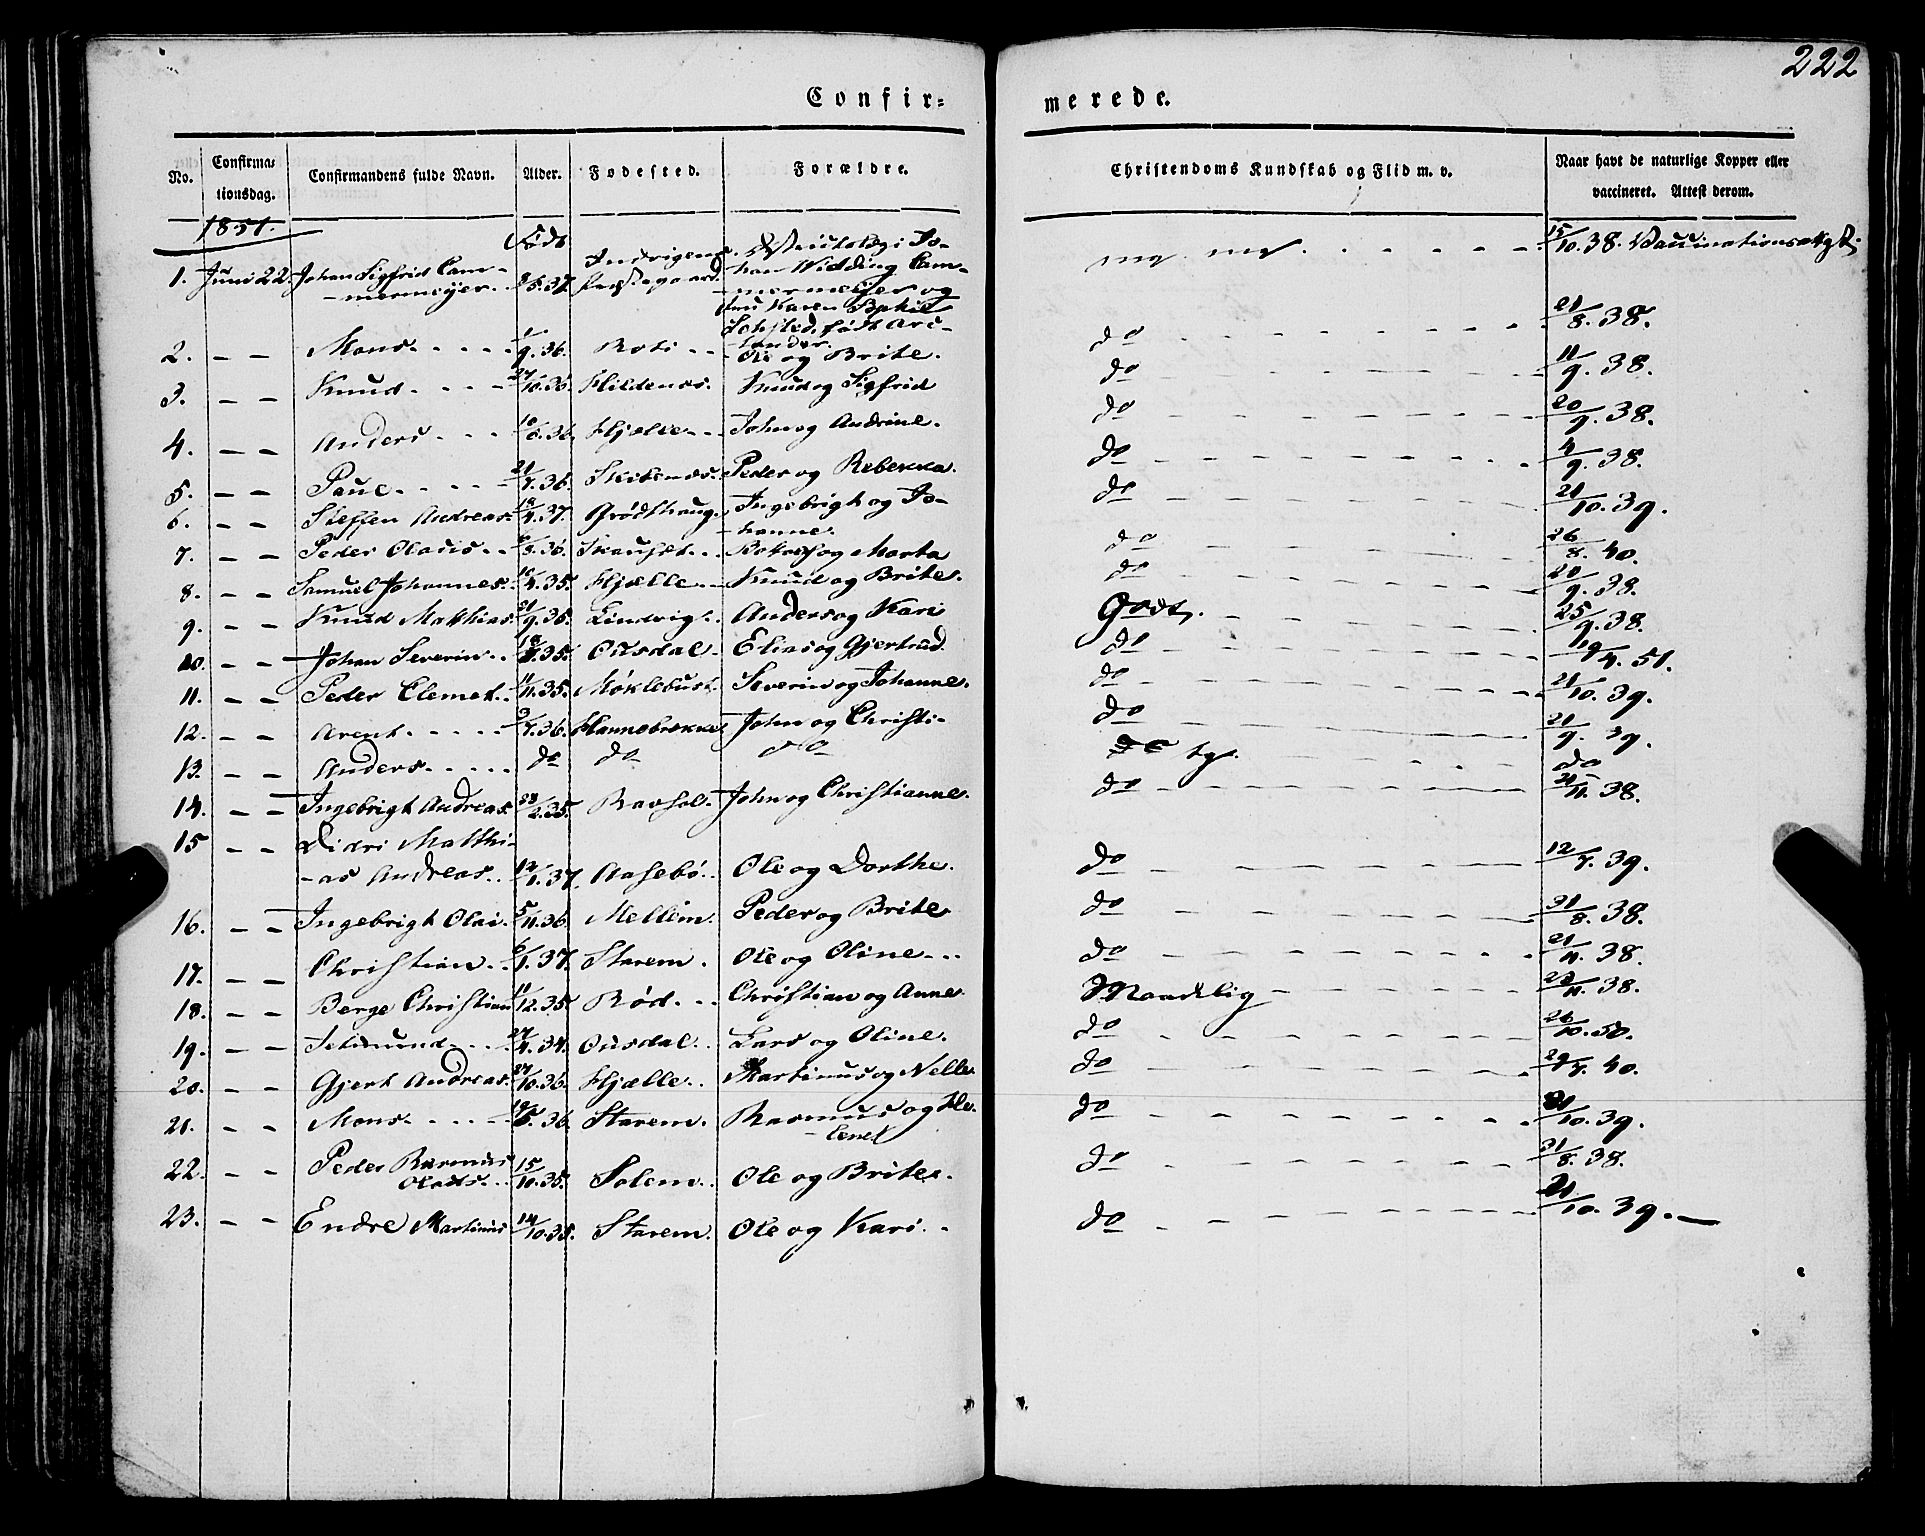 222
Confir-
merede.
No.
Confirma-
tionsdag.
Confirmandens fulde Navn.
Alder.
Fødested.
Forældre.
Christendoms Kundskab og Flid m. v.
Naar havt de naturlige Kopper eller
vaccineret. Attest derom.
1851.
Født
1. Juni 22. Johan Sigfrid Cam-
mermeijer 37. Præstegaard
han Widding Cam-
mermeijer og
Fru Karen Sophie
født Are-
lander.
mg. mg. 15/10.38. Vaccinationsattest
2. – – Mons 9.36. Roti Ole og Brite. do 21/8.38.
3. – – Knud Hildenes. Knud og Sigfrid do 11/9.38.
4. – – Anders Hjelle John og Andrine. do 20/9.38.
5. – – Paul 21/7.36. Peder og Rebekka. do 4/9.38.
6. – – Steffen Andreas. 18/4.37. Grødthaug. Ingebrigt og Jo-
hanne. do 21/10.39.
7. – – Peder Olaus og Marta do 26/8.40.
8. – – Samuel Johannes. 4.35. Hjælle Knud og Brite. do 20/9.38.
9. – – Knud Matthias. 21/9.36. Lindvig. Anders og Kari Godt, 25/9.38.
10. – – Johan Severin 35. Ousdal. Elias og Gjertrud. do 19/4.51.
11. – – Peder Clemet. 11/11.35. Møklebust. Severin og Johanne. do 21/10.39.
12. – – Arent 7.36. John og Christi- do 21/9.39.
13. – – Anders do do do tg. do
14. – – Ingebrigt Andreas. 28/2.35. John og Christianne. do 11.38.
15 – – Didri Matthi-
as Andreas 1.37. Aasebø. Ole og Dorthe. do 12/7.39.
16. – – Ingebrigt Olai. 5/11.36. Mellem. Peder og Brite do 31/8.38.
17. – – Christian 6/1.37. Starem. Ole og Oline do 21/11.38.
18. – – Berge Christian 11/12.35. Rød. Christian og Anne. Maadelig 11.38.
19. – – 27/4.34. Ousdal. Lars og Oline. do 26/10.50.
20. – – Gjert Andreas. 27/10.36. Hjælle. Martinus og Nelle do 7.40.
21. – – Mons 36. Starem. Rasmus og He-
lene do 10.39.
22. – – Peder Rasmus
Olaus 15/10.35. Solem. Ole og Brite. do 31/8.38.
23. – – Endre Martinus 14/10.35. Starem. Ole og Kari. do 21/10.39.